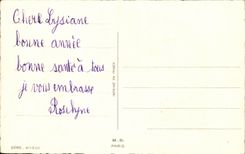 Cherl Lysiane
bonne année
bonne santé à tous
je vous embrasse
Roselyne
M. D.
PARIS